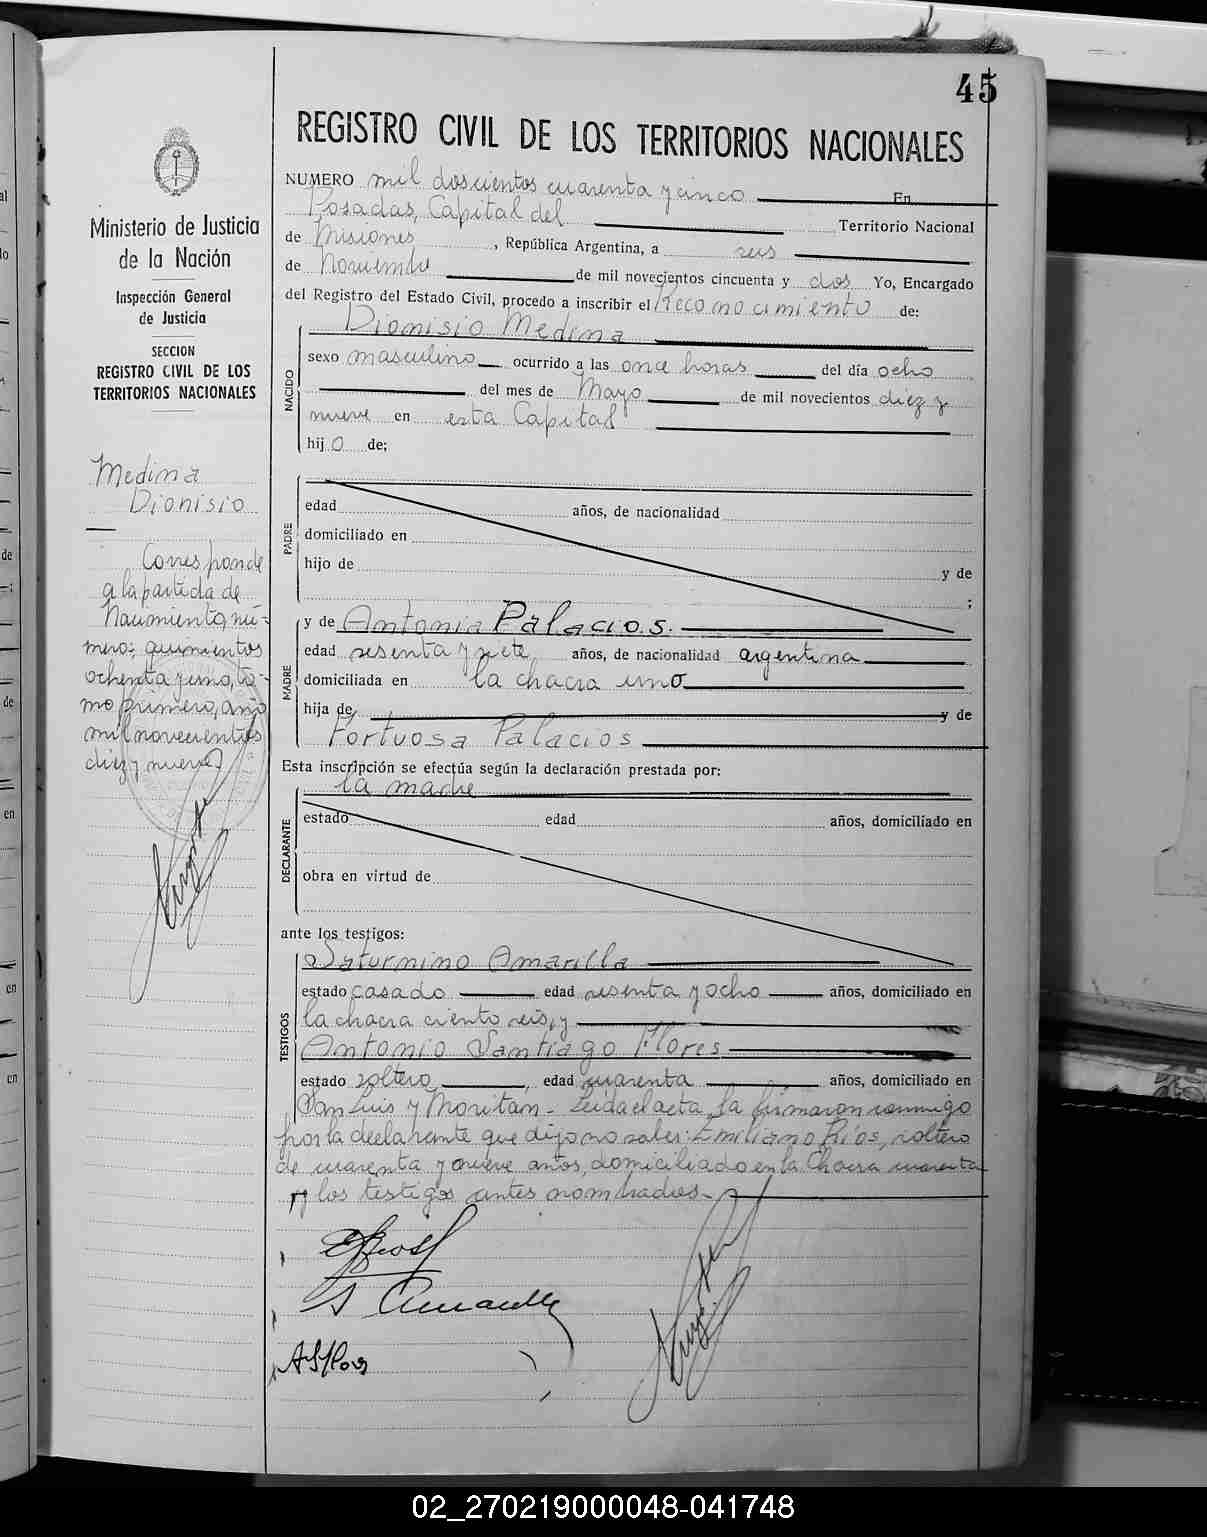 45
REGISTRO CIVIL DE LOS TERRITORIOS NACIONALES
NUMERO mil doscientos cuarenta y cinco En
Posadas, Capital del Territorio Nacional
de Misiones, República Argentina, a seis
de Noviembre de mil novecientos cincuenta y dos Yo, Encargado
del Registro del Estado Civil, procedo a inscribir el Reconocimiento de:
Dionisio Medina
NACIDO
sexo masculino ocurrido a las once horas del día ocho
del mes de Mayo de mil novecientos diez y
nueve en esta Capital
hijo de;
PADRE
edad años, de nacionalidad
domiciliado en
hijo de y de
;
MADRE
y de Antonia Palacios.
edad sesenta y siete años, de nacionalidad argentina
domiciliada en la chacra uno
hija de y de
Fortuosa Palacios
Esta inscripción se efectúa según la declaración prestada por:
la madre
DECLARANTE
estado edad años, domiciliado en
obra en virtud de
ante los testigos:
TESTIGOS
Saturnino Amarilla
estado casado edad sesenta y ocho años, domiciliado en
la chacra ciento seis, y
Antonio Santiago Flores
estado soltero, edad cuarenta años, domiciliado en
San Luis y Moritán - Leida el acta, la firmaron conmigo
por la declarante que dijo no saber: Emiliano Ríos, soltero
de cuarenta y nueve años, domiciliado en la Chacra cuarenta
y los testigos antes nombrados -
ERios
S Amarilla
ASFlores
Ministerio de Justicia
de la Nación
Inspección General
de Justicia
SECCION
REGISTRO CIVIL DE LOS
TERRITORIOS NACIONALES
Medina
Dionisio
Corresponde
a la partida de
Nacimiento, nú-
mero: quinientos
ochenta y uno, to-
mo primero, año
mil novecientos
diez y nueve
al
lo
de
de
en
en
en
02_270219000048-041748